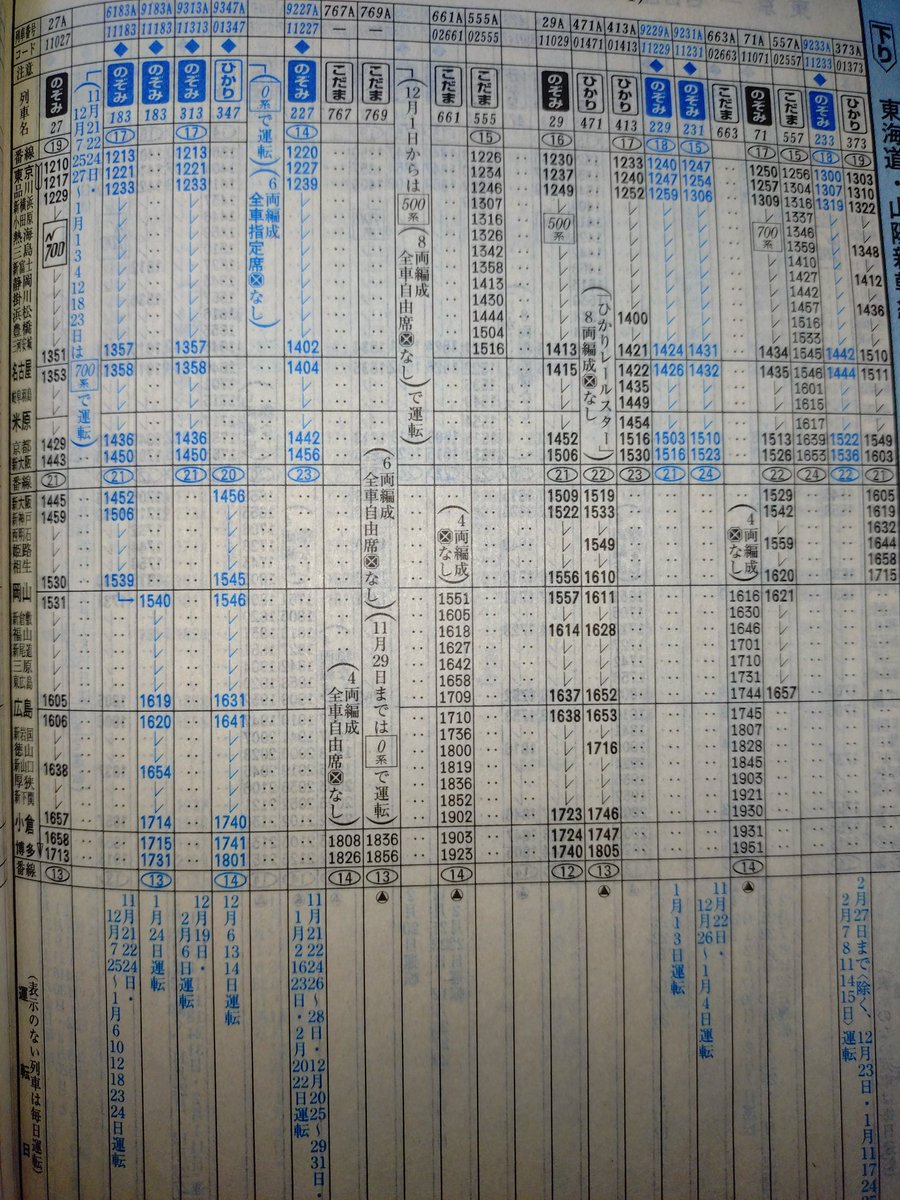 下り 東海道・山陽新幹線
列車番号 27A 6183A 9183A 9313A 9347A 9227A 767A 769A 661A 555A 29A 471A 413A 9229A 9231A 663A 71A 557A 9233A 373A
コード 11027 11183 11183 11313 01347 11227 — — 02661 02555 11029 01471 01413 11229 11231 02663 11071 02557 11233 01373
注意 ◆ ◆ ◆ ◆ ◆ ◆ ◆ ◆
列車名 のぞみ のぞみ のぞみ のぞみ ひかり のぞみ こだま こだま こだま こだま のぞみ ひかり ひかり のぞみ のぞみ こだま のぞみ こだま のぞみ ひかり
27 183 183 313 347 227 767 769 661 555 29 471 413 229 231 663 71 557 233 373
番線 ⑲ ⑰ ⑰ ⑭ ⑮ ⑯ ⑰ ⑱ ⑮ ⑰ ⑮ ⑱ ⑲
東京 1210 1213 1213 1220 1226 1230 1233 1240 1247 1250 1256 1300 1303
品川 1217 1221 1221 1227 1234 1237 1240 1247 1254 1257 1304 1307 1310
新横浜 1229 1233 1233 1239 1246 1249 1252 1259 1306 1309 1316 1319 1322
小田原 1307 1337
熱海 1316 1346
三島 1326 1359 1348
新富士 1342 1410
静岡 1358 1427 1412
掛川 1413 1442
浜松 1430 1457 1436
豊橋 1444 1400 1516
三河安城 1504 1533
名古屋 1351 1357 1357 1402 1516 1413 1421 1424 1431 1434 1545 1442 1510
1353 1358 1358 1404 1415 1422 1426 1432 1435 1546 1444 1511
岐阜羽島 1435 1601
米原 1449 1615
1454 1617
京都 1429 1436 1436 1442 1452 1516 1503 1510 1513 1639 1522 1549
新大阪 1443 1450 1450 1456 1506 1530 1516 1523 1526 1653 1536 1603
番線 ㉑ ㉑ ㉑ ⑳ ㉓ ㉑ ㉒ ㉓ ㉑ ㉔ ㉒ ㉔ ㉒ ㉑
新大阪 1445 1452 1456 1509 1519 1529 1605
新神戸 1459 1506 1522 1533 1542 1619
西明石 1632
姫路 1549 1559 1644
相生 1658
岡山 1530 1539 1545 1556 1610 1620 1715
1531 1540 1546 1551 1557 1611 1616 1621
新倉敷 1605 1630
福山 1618 1614 1628 1646
新尾道 1627 1701
三原 1642 1710
東広島 1658 1731
広島 1605 1619 1631 1709 1637 1652 1744 1657
1606 1620 1641 1710 1638 1653 1745
新岩国 1736 1807
徳山 1800 1716 1828
新山口 1638 1654 1819 1845
厚狭 1836 1903
新下関 1852 1921
小倉 1657 1714 1740 1902 1723 1746 1930
1658 1715 1741 1808 1836 1903 1724 1747 1931
博多 1713 1731 1801 1826 1856 1923 1740 1805 1951
番線 ⑬ ⑬ ⑭ ⑭ ⑬ ⑭ ⑫ ⑬ ⑭
N700
11月21・22・24日・12月7・25・27〜1月3・4・12・18・23日は700系で運転
(0系で運転)
(6両編成 全車指定席 なし)
(4両編成 全車自由席 なし)
(6両編成 全車自由席 なし)
(11月29日までは0系で運転)
(12月1日からは500系で運転)
(8両編成 全車自由席 なし)
(4両編成 なし)
500系
(「ひかりレールスター」8両編成 なし)
(4両編成 なし)
700系
運転日
(表示のない列車は毎日運転)
11月21・22・24日・12月7・25〜1月6・10・12・18・23・24日運転
1月24日運転
12月19日・2月6日運転
12月6・13・14日運転
11月21・22・24・26〜28日・12月20・25〜29・31日・1月2・16・23日・2月20・22日運転
1月13日運転
11月22日・12月26〜1月4日運転
2月27日まで(除く、12月23日・1月11・17・24
2月7・8・11・14・15日)運転